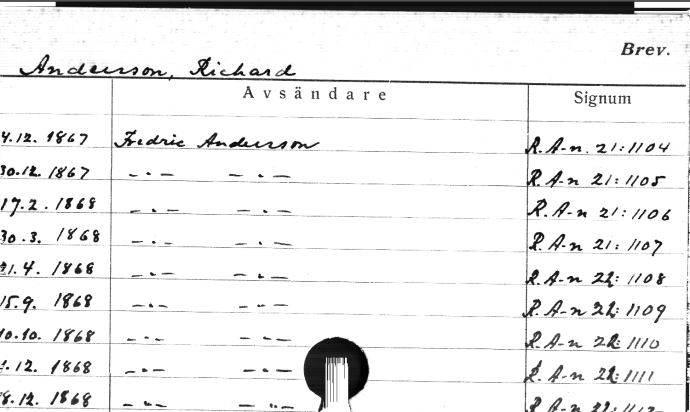 Brev.
Anderson, Richard
Avsändare Signum
4.12. 1867 Fredric Anderson R. A-n. 21:1104
30.12. 1867 -"- -"- R. A-n 21:1105
17.2. 1868 -"- -"- R. A-n 21:1106
30.3. 1868 -"- -"- R. A-n 21:1107
21.4. 1868 -"- -"- R. A-n 22:1108
15.9. 1868 -"- -"- R. A-n 22:1109
10.10. 1868 -"- -"- R. A-n 22:1110
.12. 1868 -"- -"- R. A-n 22:1111
8.12. 1868 -"- -"- R. A-n